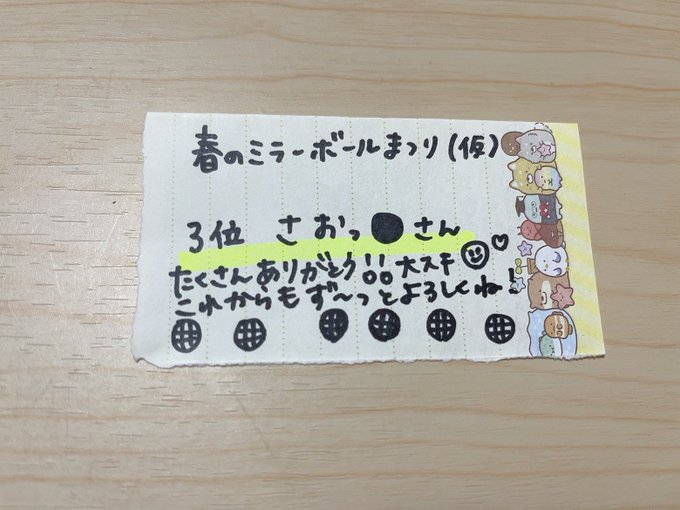 春のミラーボールまつり(仮)
3位 さおっ●さん
たくさんありがとう!! 大スキ
これからもず〜っとよろしくね!